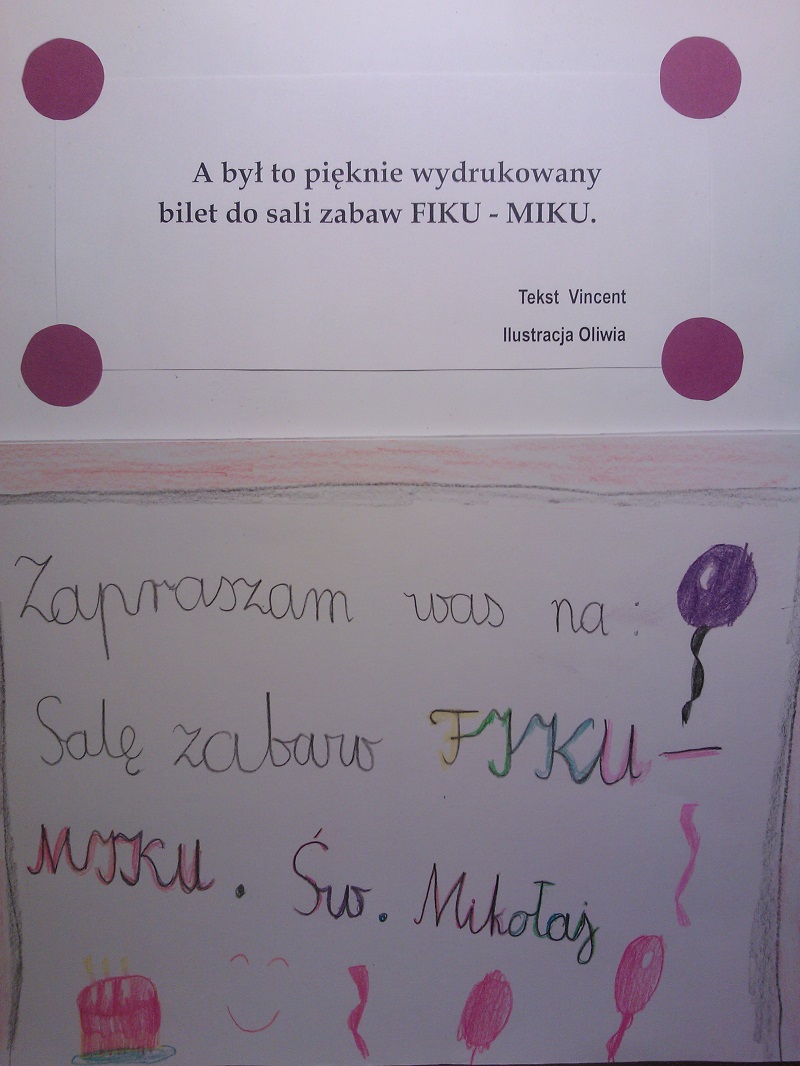 A był to pięknie wydrukowany
bilet do sali zabaw FIKU - MIKU.
Tekst Vincent
Ilustracja Oliwia
Zapraszam was na:
Salę zabaw FIKU -
MIKU. Św. Mikołaj